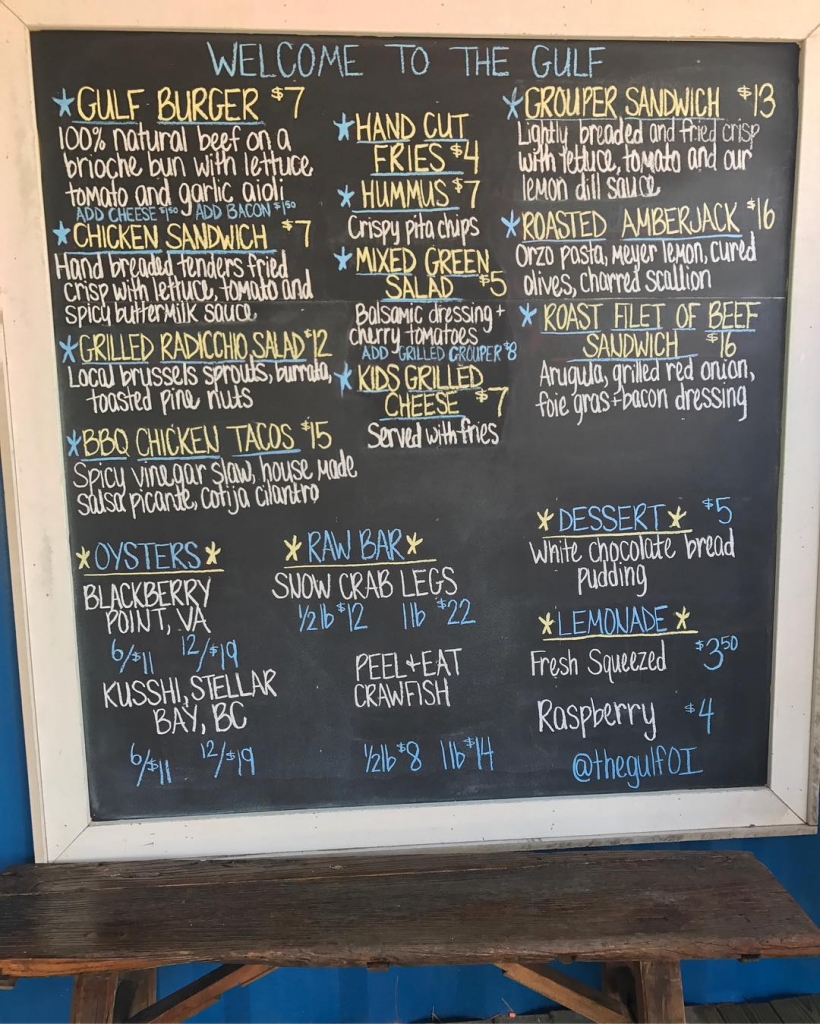 WELCOME TO THE GULF
*GULF BURGER $7
100% natural beef on a
brioche bun with lettuce,
tomato and garlic aioli
ADD CHEESE $1.50 ADD BACON $1.50
*CHICKEN SANDWICH $7
Hand breaded tenders fried
crisp with lettuce, tomato and
spicy buttermilk sauce
*GRILLED RADICCHIO SALAD $12
Local brussels sprouts, burrata,
toasted pine nuts
*BBQ CHICKEN TACOS $15
Spicy vinegar slaw, house made
salsa picante, cotija cilantro
*HAND CUT
FRIES $4
*HUMMUS $7
Crispy pita chips
*MIXED GREEN
SALAD $5
Balsamic dressing +
cherry tomatoes
ADD GRILLED GROUPER $8
*KIDS GRILLED
CHEESE $7
Served with fries
*GROUPER SANDWICH $13
Lightly breaded and fried crisp
with lettuce, tomato and our
lemon dill sauce
*ROASTED AMBERJACK $16
Orzo pasta, meyer lemon, cured
olives, charred scallion
*ROAST FILET OF BEEF
SANDWICH $16
Arugula, grilled red onion,
foie gras + bacon dressing
*OYSTERS*
BLACKBERRY
POINT, VA
6/$11 12/$19
KUSSHI, STELLAR
BAY, BC
6/$11 12/$19
*RAW BAR*
SNOW CRAB LEGS
1/2lb $12 1lb $22
PEEL + EAT
CRAWFISH
1/2lb $8 1lb $14
*DESSERT* $5
White chocolate bread
pudding
*LEMONADE*
Fresh Squeezed $3.50
Raspberry $4
@thegulfOI